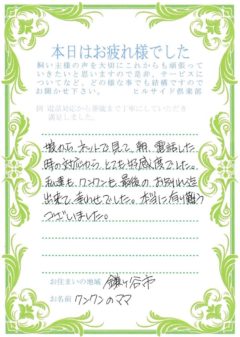 本日はお疲れ様でした
飼い主様の声を大切にこれからも頑張って
いきたいと思いますので是非、サービスに
ついてなど、どの様な事でも結構ですので
お聞かせ下さい。 ヒルサイド倶楽部
例 電話対応から葬儀まで丁寧にしていただき
満足しました。
ネットで見て、朝、電話した
時の対応から、とても好感度でした。
私達も、ワンワンと、最後のお別れが
出来て、幸わせでした。本当に有り難う
ございました。
お住まいの地域 鎌ヶ谷市
お名前 ワンワンのママ